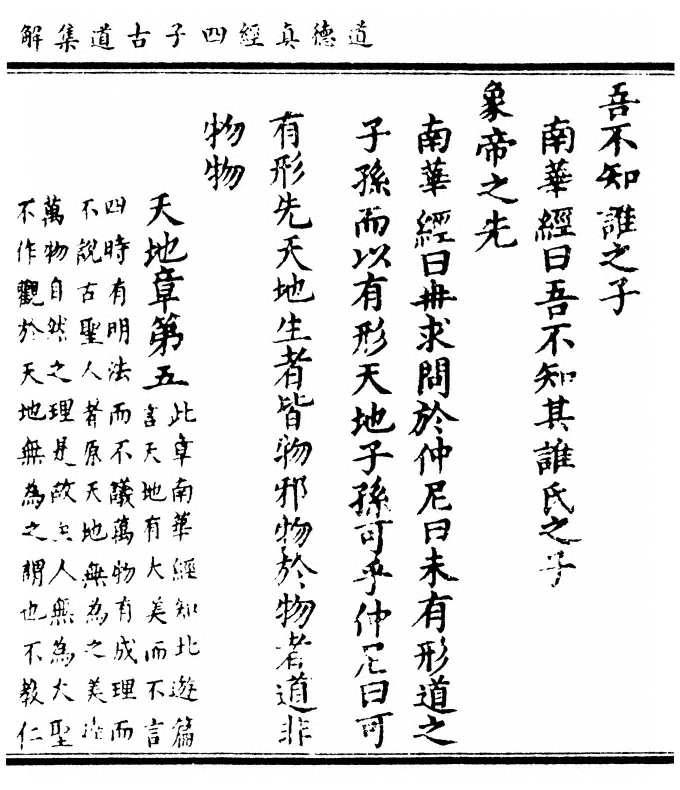 道德真經四子古道集解
吾不知誰之子
南華經曰吾不知其誰氏之子
象帝之先
南華經曰冉求問於仲尼曰未有形道之
子孫而以有形天地子孫可乎仲尼曰可
有形先天地生者皆物邪物於物者道非
物物
天地章第五
此章南華經知北遊篇
言天地有大美而不言
四時有明法而不議萬物有成理而
不說古聖人者原天地無為之美達
萬物自然之理是故至人無為大聖
不作觀於天地無為之謂也不教仁